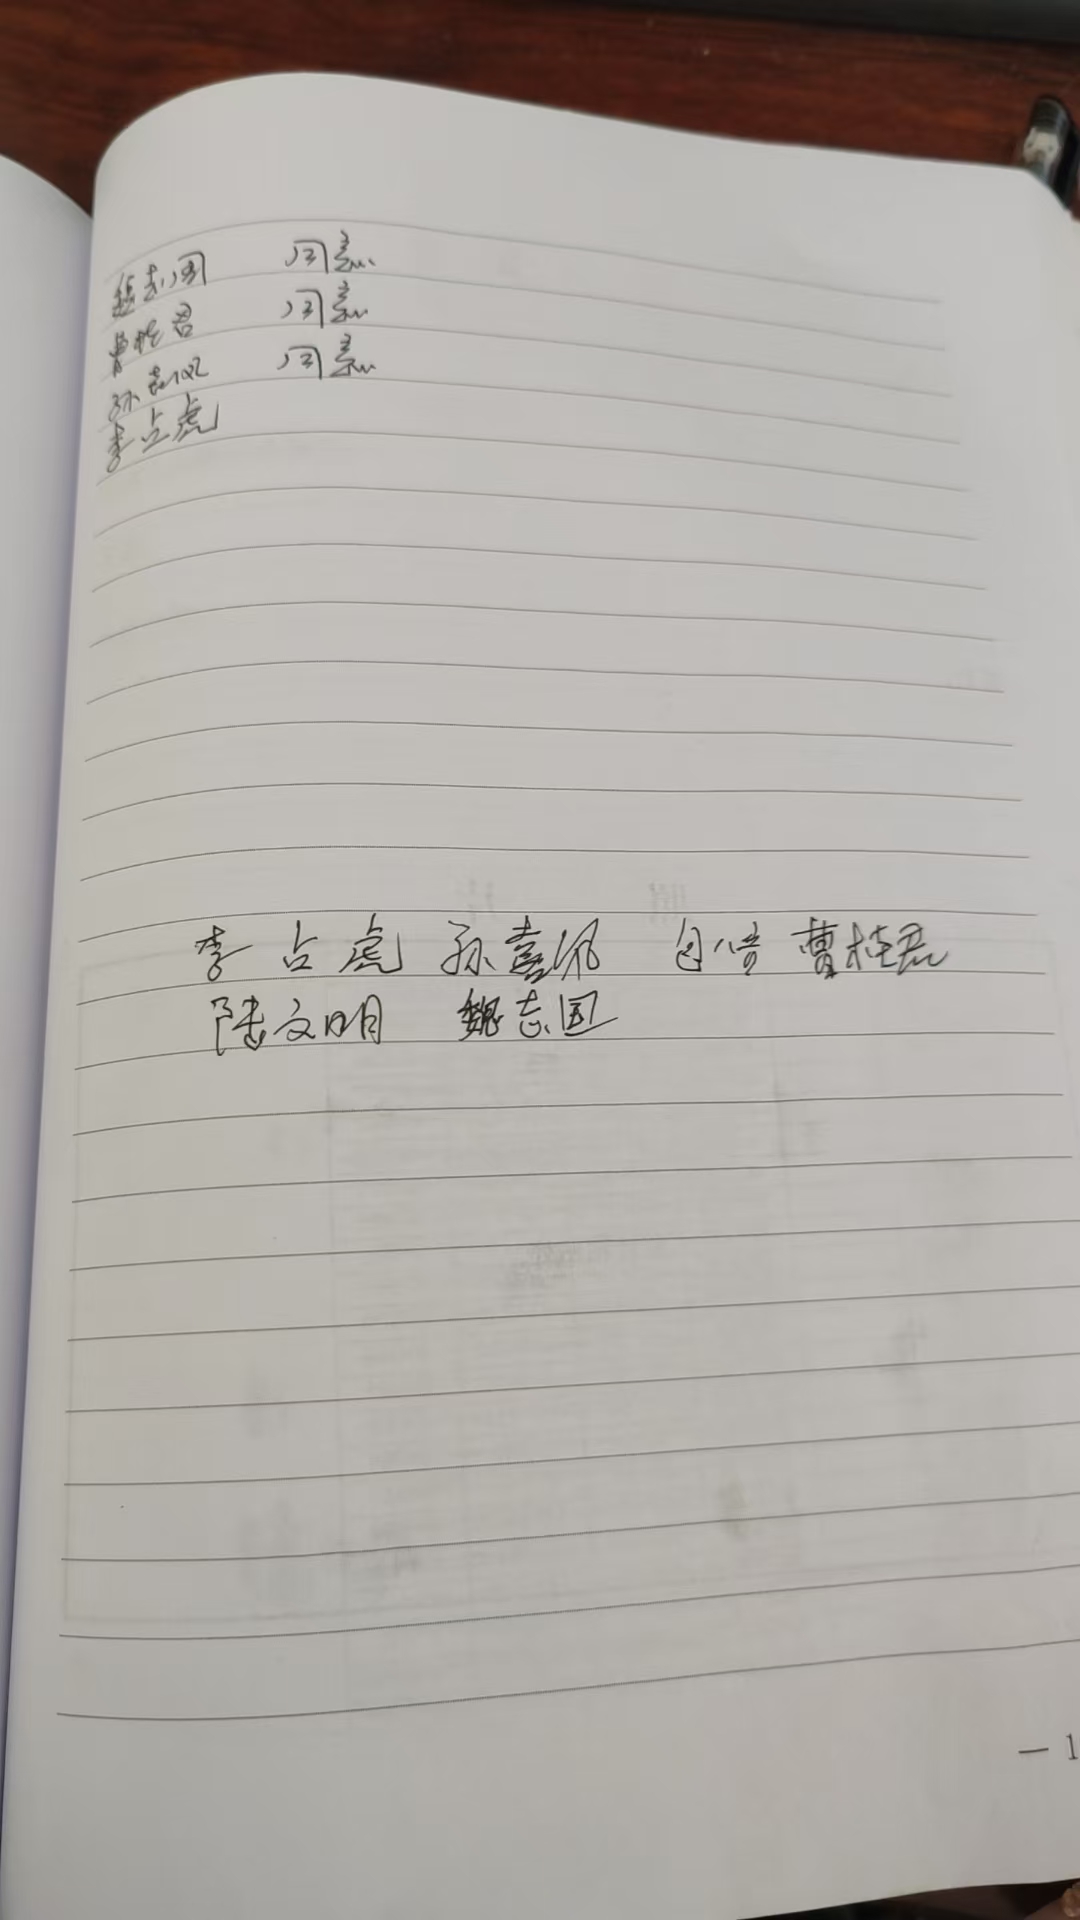 魏志国 同意
曹桂君 同意
孙喜风 同意
李占虎
李占虎 孙喜风 曹桂君
陆文明 魏志国
— 1